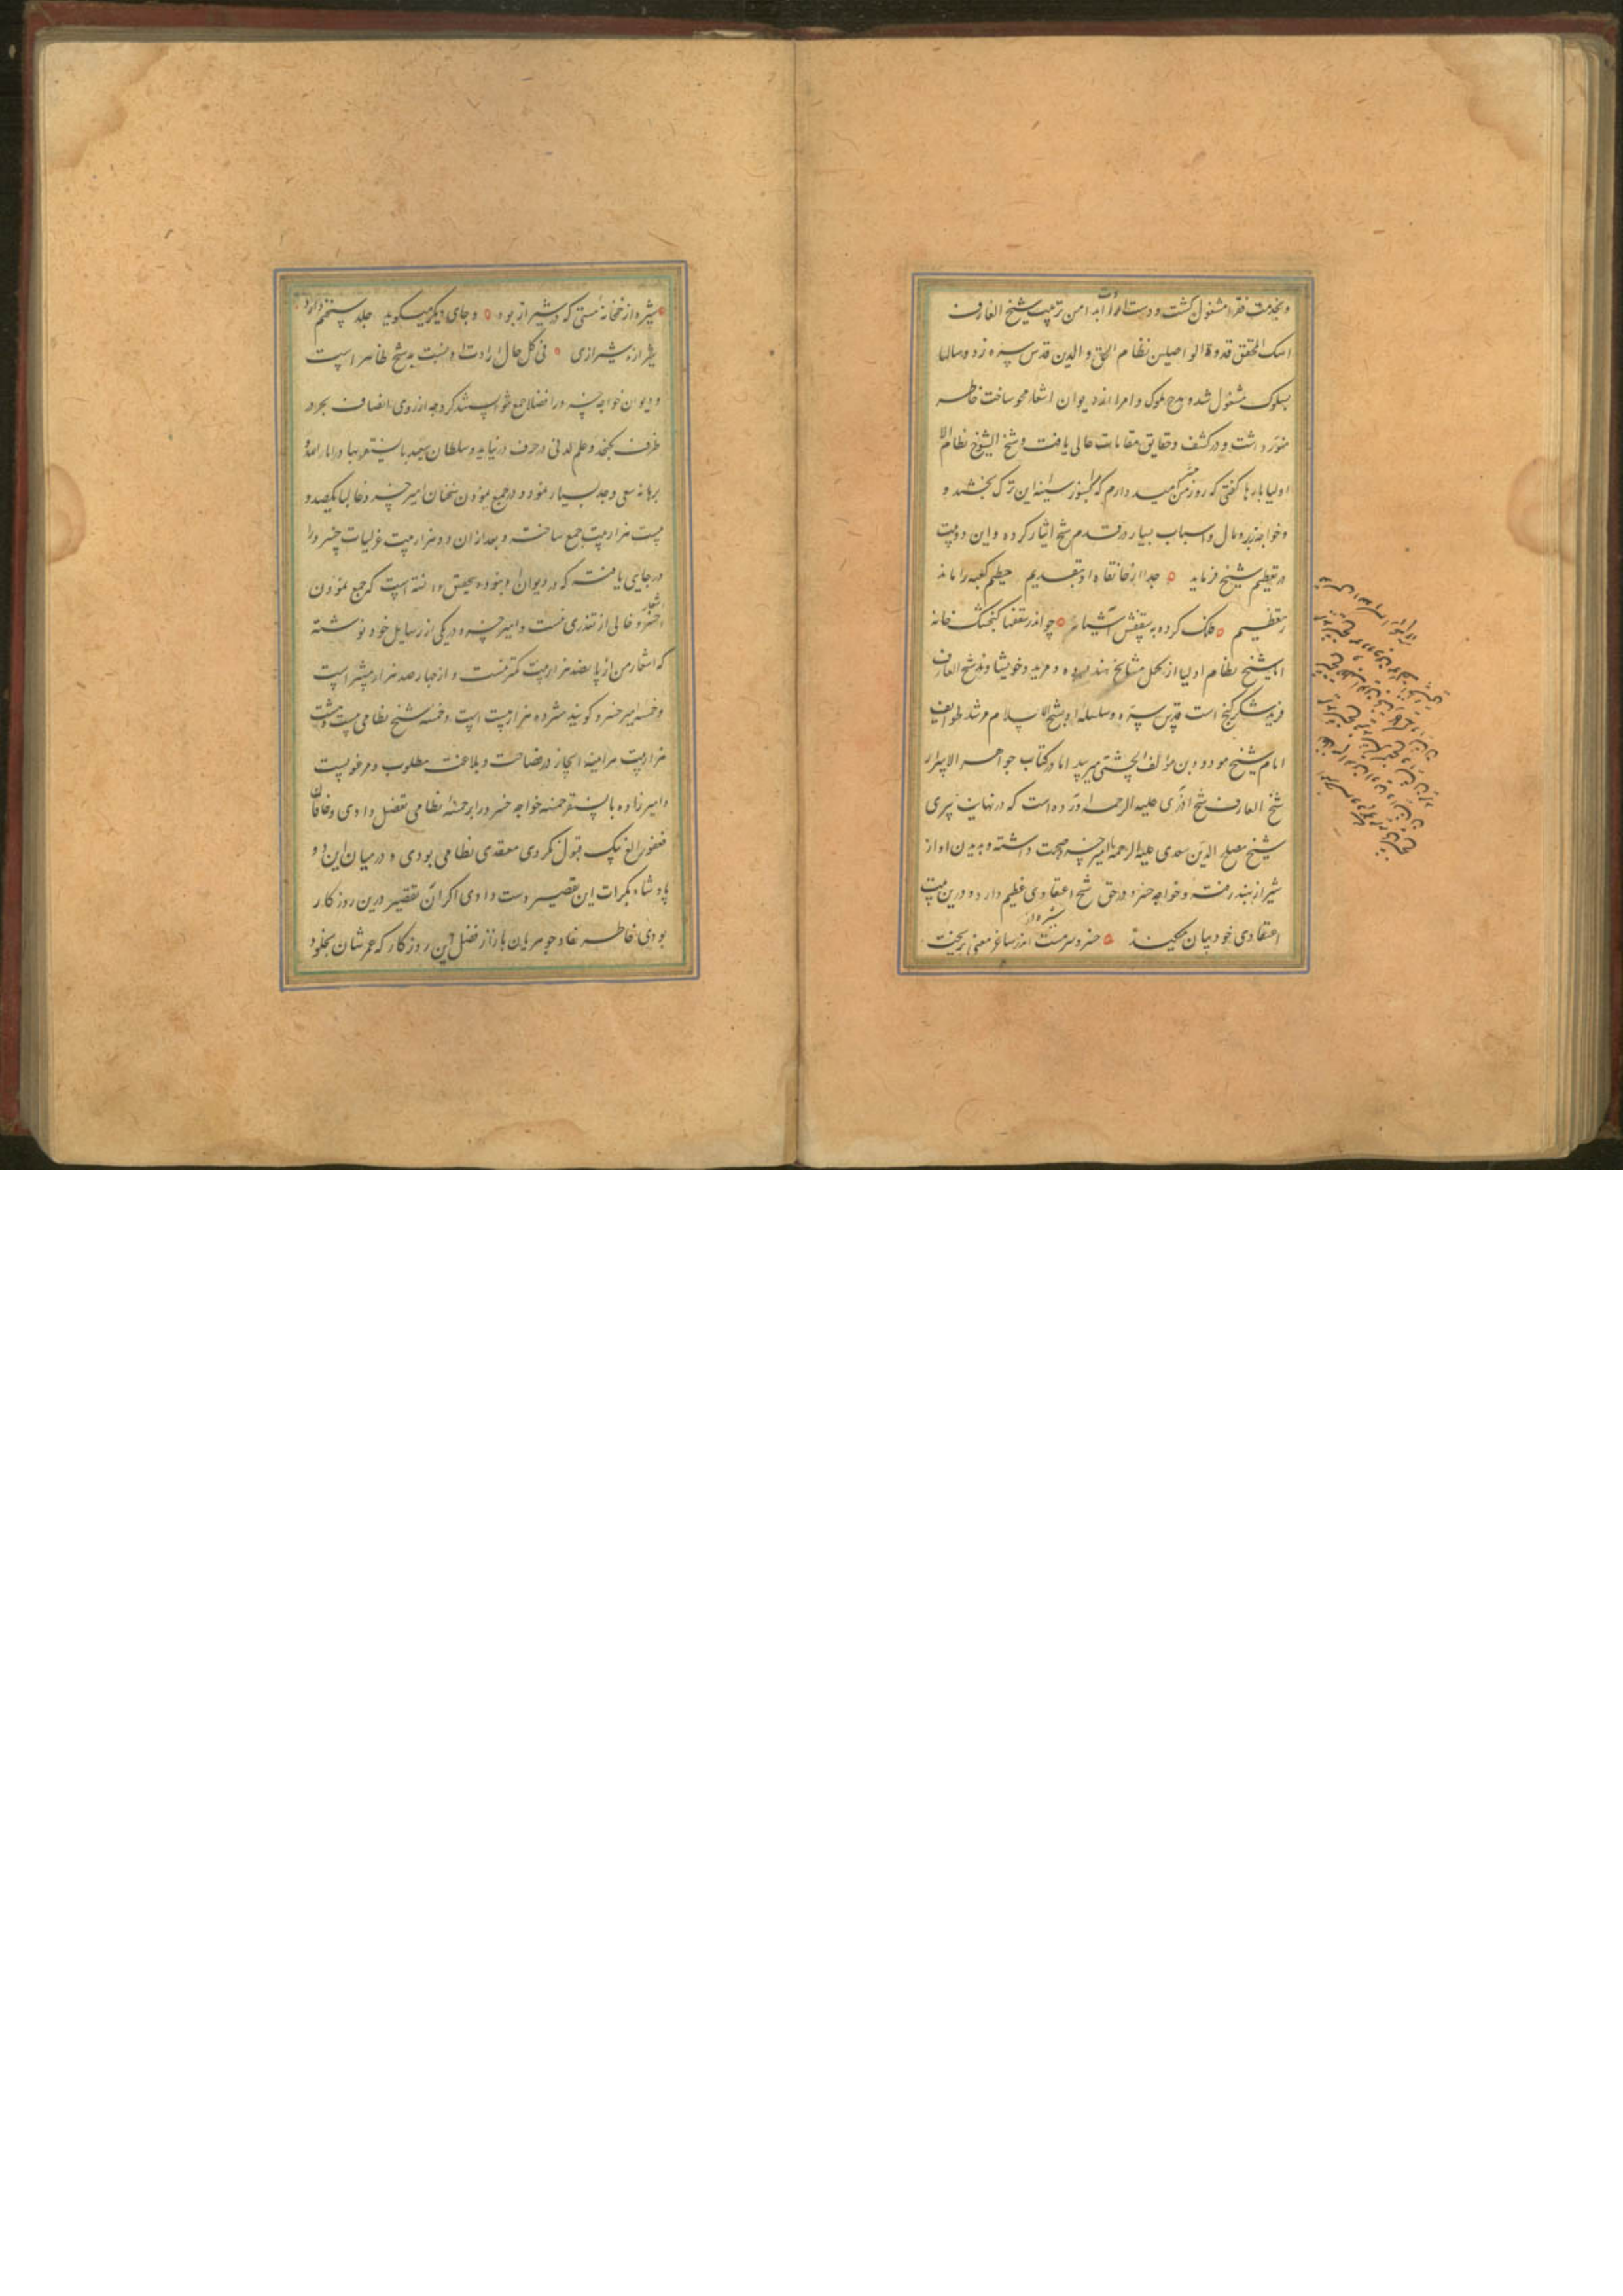 وبخدمت فقرا مشغول گشت و دست ارادت ابدا من تربیت شیخ العارف
المحقق قدوة الواصلین نظام الحق و الدین قدس سره زد و سالها
بسلوک مشغول شده مدح ملوک و امرا از دیوان اشعار محو ساخت خاطر
منور داشت و در کشف و حقایق مقامات عالی یافت و شیخ الشیوخ نظام الا
اولیا بارها گفتی که روز حشر امید دارم که بسوز سینه این ترک بخشند و
و خواجه زر و مال و اسباب بسیار در قدم شیخ ایثار کرده و این دو بیت
در تعظیم شیخ فرماید جدا از خانقاه او بتقدیم حطیم کعبه را ماند
ز تعظیم فلک کرده به سقفش آشیانه چو اندر سقفها کنجشک خانه
اما شیخ نظام اولیا از کمل مشایخ هند بوده و مرید و خویشاوند شیخ العارف
فرید شکر گنج است قدس سره و سلسله او بشیخ الاسلام مرشد طوایف
امام شیخ مودود بن مؤلف الچشتی میرسد اما در کتاب جواهر الاسرار
شیخ العارف شیخ آذری علیه الرحمه آورده است که در نهایت پیری
شیخ مصلح الدین سعدی علیه الرحمه با امیر خسرو صحبت داشته و بدیدن او از
شیراز بهند رفته و خواجه خسرو در حق شیخ اعتقادی عظیم دارد و درین بیت
اعتقادی خود بیان میکند خسرو سرمست اندر ساغر معنی بریخت
شیره از خمخانه مستی که در شیراز بود و جای دیگر میگوید جلد سخنم دارد
شیرازه شیرازی فی کل حال ارادت او نسبت به شیخ ظاهر است
و دیوان خواجه خسرو را فضلا جمع نتوانستند کرد چه از روی انصاف بحر در
ظرف نگنجد و علم لدنی در حرف درنیاید و سلطان سعید بایسنغر بهادر انار الله
برهانه سعی و جد بسیار نمود و در جمع نمودن سخنان امیر خسرو و غالبا یکصد و
بیست هزار بیت جمع ساخت و بعد از آن دو هزار بیت غزلیات خسرو را
در جایی یافته که در دیوان او نبوده بتحقیق دانسته است که جمع نمودن
اشعار خسرو خالی از تعذری نیست و امیر خسرو در یکی از رسایل خود نوشته
که اشعار من از پانصد هزار بیت کمتر نیست و از چهار صد هزار بیشتر است
و خمسه امیر خسرو گویند هژده هزار بیت است و خمسه شیخ نظامی بیست و هشت
هزار بیت هر آینه ایجاز در فصاحت و بلاغت مطلوب و مرغوبست
و امیرزاده بایسنغر خمسه خواجه خسرو را بر خمسه نظامی تفضل دادی و خاقان
مغفور الغ بیک قبول نکردی و معتقد نظامی بودی و در میان این دو
پادشاه بکرات این تعصب دست دادی اگر آن درین روزگار
بودی خاطر نقاد جوهریان بازار فضل این روزگار که عمرشان بخلود